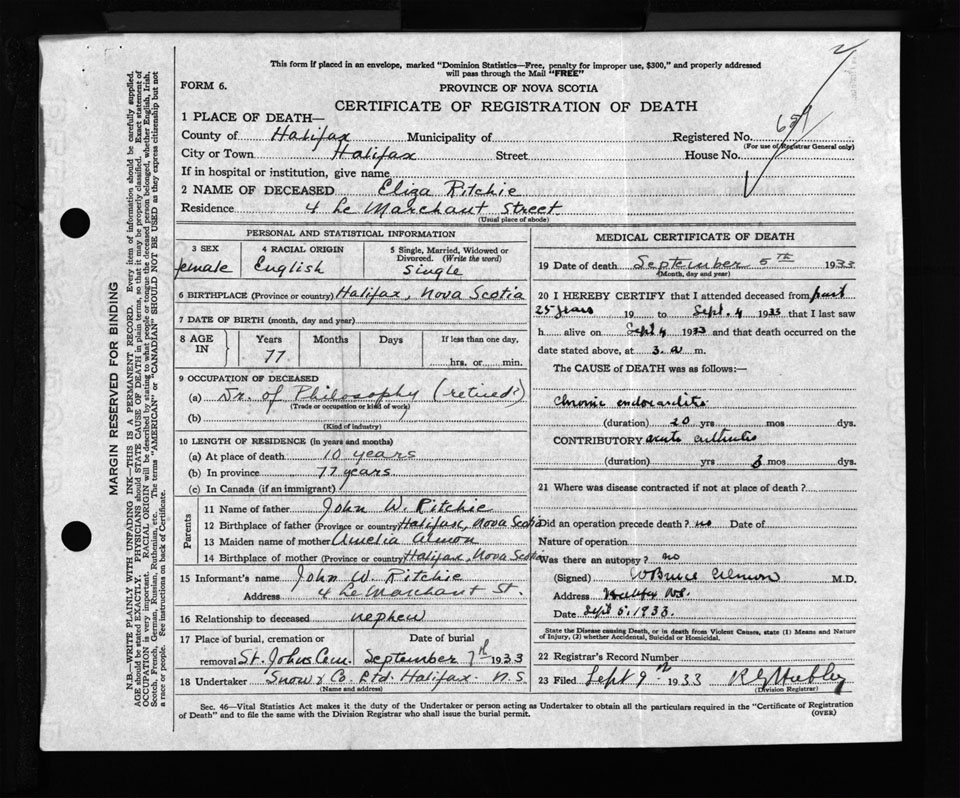 This form if placed in an envelope, marked "Dominion Statistics—Free, penalty for improper use, $300," and properly addressed
will pass through the Mail "FREE"
FORM 6.
PROVINCE OF NOVA SCOTIA
CERTIFICATE OF REGISTRATION OF DEATH
1 PLACE OF DEATH—
County of Halifax Municipality of Registered No. 659
(For use of Registrar General only)
City or Town Halifax Street House No.
If in hospital or institution, give name
2 NAME OF DECEASED Eliza Ritchie
Residence 4 Le Marchant Street
(Usual place of abode)
PERSONAL AND STATISTICAL INFORMATION
3 SEX
female
4 RACIAL ORIGIN
English
5 Single, Married, Widowed or
Divorced. (Write the word)
Single
6 BIRTHPLACE (Province or country) Halifax, Nova Scotia
7 DATE OF BIRTH (month, day and year)
8 AGE
IN
Years
77
Months
Days
If less than one day,
hrs. or min.
9 OCCUPATION OF DECEASED
(a) Dr. of Philosophy (retired)
(Trade or occupation or kind of work)
(b)
(Kind of industry)
10 LENGTH OF RESIDENCE (in years and months)
(a) At place of death 10 years
(b) In province 77 years
(c) In Canada (if an immigrant)
Parents
11 Name of father John W. Ritchie
12 Birthplace of father (Province or country) Halifax, Nova Scotia
13 Maiden name of mother Amelia Almon
14 Birthplace of mother (Province or country) Halifax, Nova Scotia
15 Informant's name John W. Ritchie
Address 4 Le Marchant St.
16 Relationship to deceased nephew
17 Place of burial, cremation or
removal St. Johns Cem.
Date of burial
September 7th 1933
18 Undertaker Snow & Co. Ltd. Halifax N.S.
(Name and address)
MEDICAL CERTIFICATE OF DEATH
19 Date of death September 5TH 1933
(Month, day and year)
20 I HEREBY CERTIFY that I attended deceased from past
25 years 19 to Sept. 4 1933 that I last saw
h alive on Sept 4 1933 and that death occurred on the
date stated above, at 3. a m.
The CAUSE of DEATH was as follows:—
Chronic endocarditis
(duration) 20 yrs mos dys.
CONTRIBUTORY acute
(duration) yrs 3 mos dys.
21 Where was disease contracted if not at place of death?
Did an operation precede death? no Date of
Nature of operation
Was there an autopsy? no
(Signed) W Bruce Almon M.D.
Address Halifax N.S.
Date Sept 5. 1933.
State the Disease causing Death, or in death from Violent Causes, state (1) Means and Nature
of Injury, (2) whether Accidental, Suicidal or Homicidal.
22 Registrar's Record Number
23 Filed Sept 9th 1933
(Division Registrar)
Sec. 46—Vital Statistics Act makes it the duty of the Undertaker or person acting as Undertaker to obtain all the particulars required in the "Certificate of Registration
of Death" and to file the same with the Division Registrar who shall issue the burial permit.
(OVER)
MARGIN RESERVED FOR BINDING
N.B.—WRITE PLAINLY WITH UNFADING INK—THIS IS A PERMANENT RECORD. Every item of information should be carefully supplied.
AGE should be stated EXACTLY. PHYSICIANS should STATE CAUSE OF DEATH in plain terms, so that it may be properly classified. Exact statement of
OCCUPATION is very important. RACIAL ORIGIN will be described by stating to what people or tongue the deceased person belonged, whether English, Irish,
Scotch, French, German, Russian, Ruthenian, etc. The terms "AMERICAN" or "CANADIAN" SHOULD NOT BE USED as they express citizenship but not
a race or people. See instructions on back of Certificate.